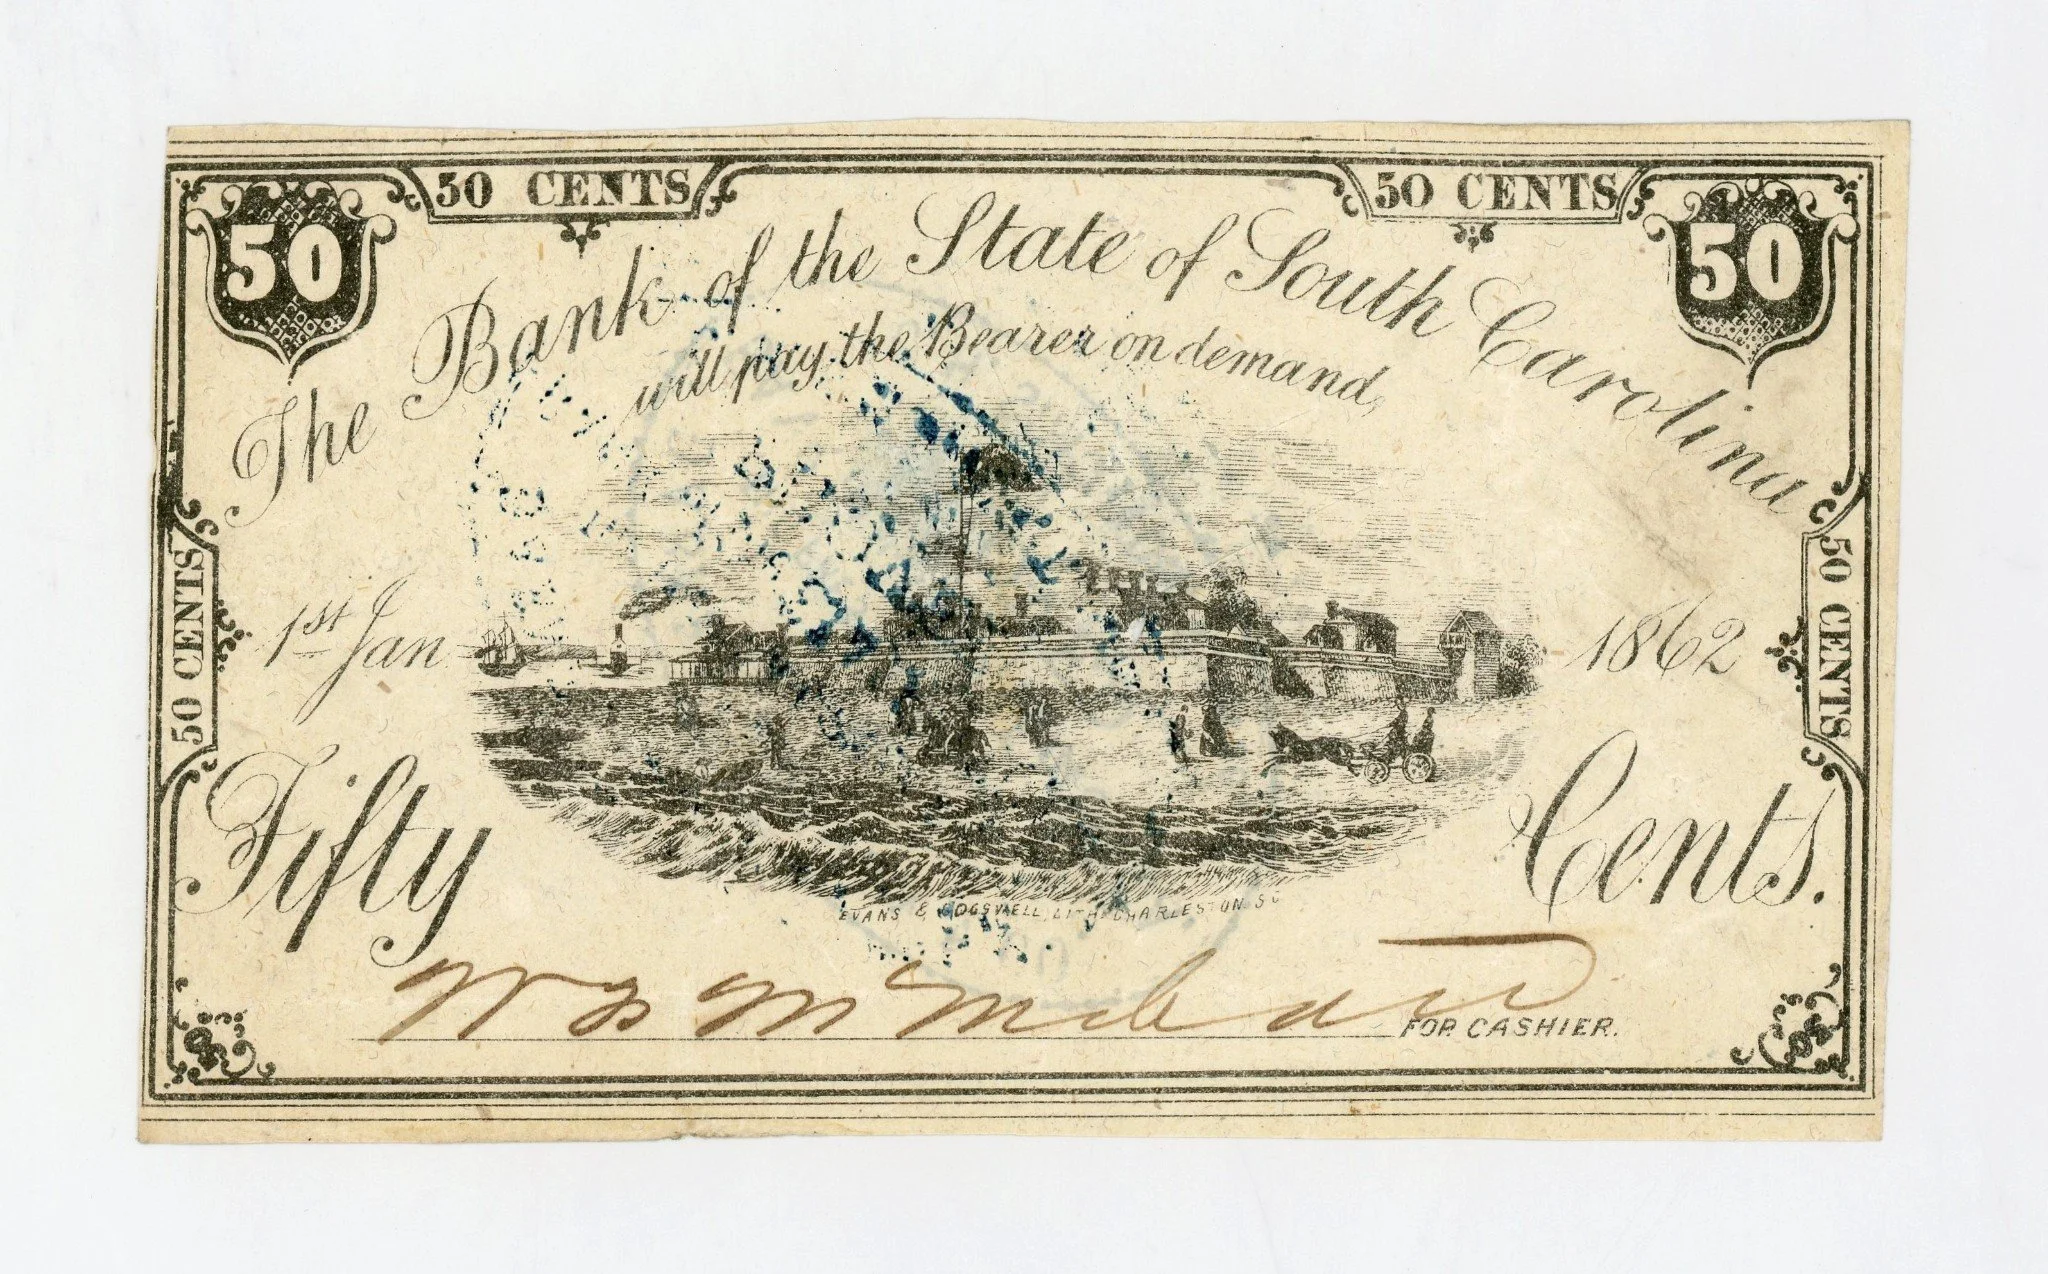 50 CENTS
50 CENTS
50
50
The Bank of the State of South Carolina
will pay the Bearer on demand,
50 CENTS
50 CENTS
1st Jan
1862
Fifty
Cents.
EVANS & COGSWELL, LITH. CHARLESTON SC
FOR CASHIER.
50
50